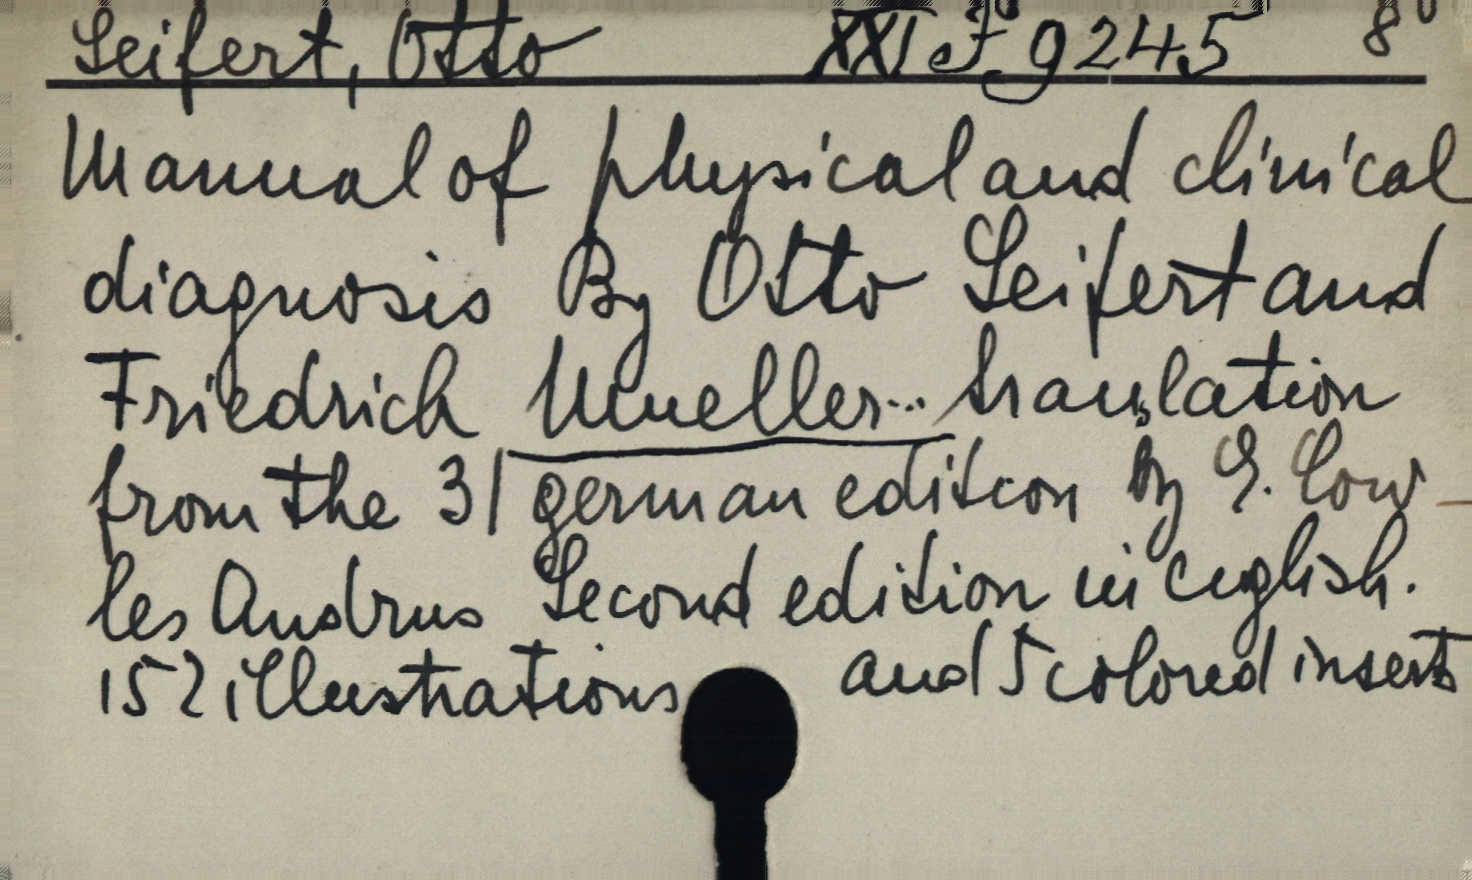 Seifert, Otto XXI F 9245 8°
Manual of physical and clinical
diagnosis By Otto Seifert and
Friedrich Mueller... translation
from the 31 german edition by E. Cow-
les Andrus Second edition in english.
152 illustrations and 5 colored inserts